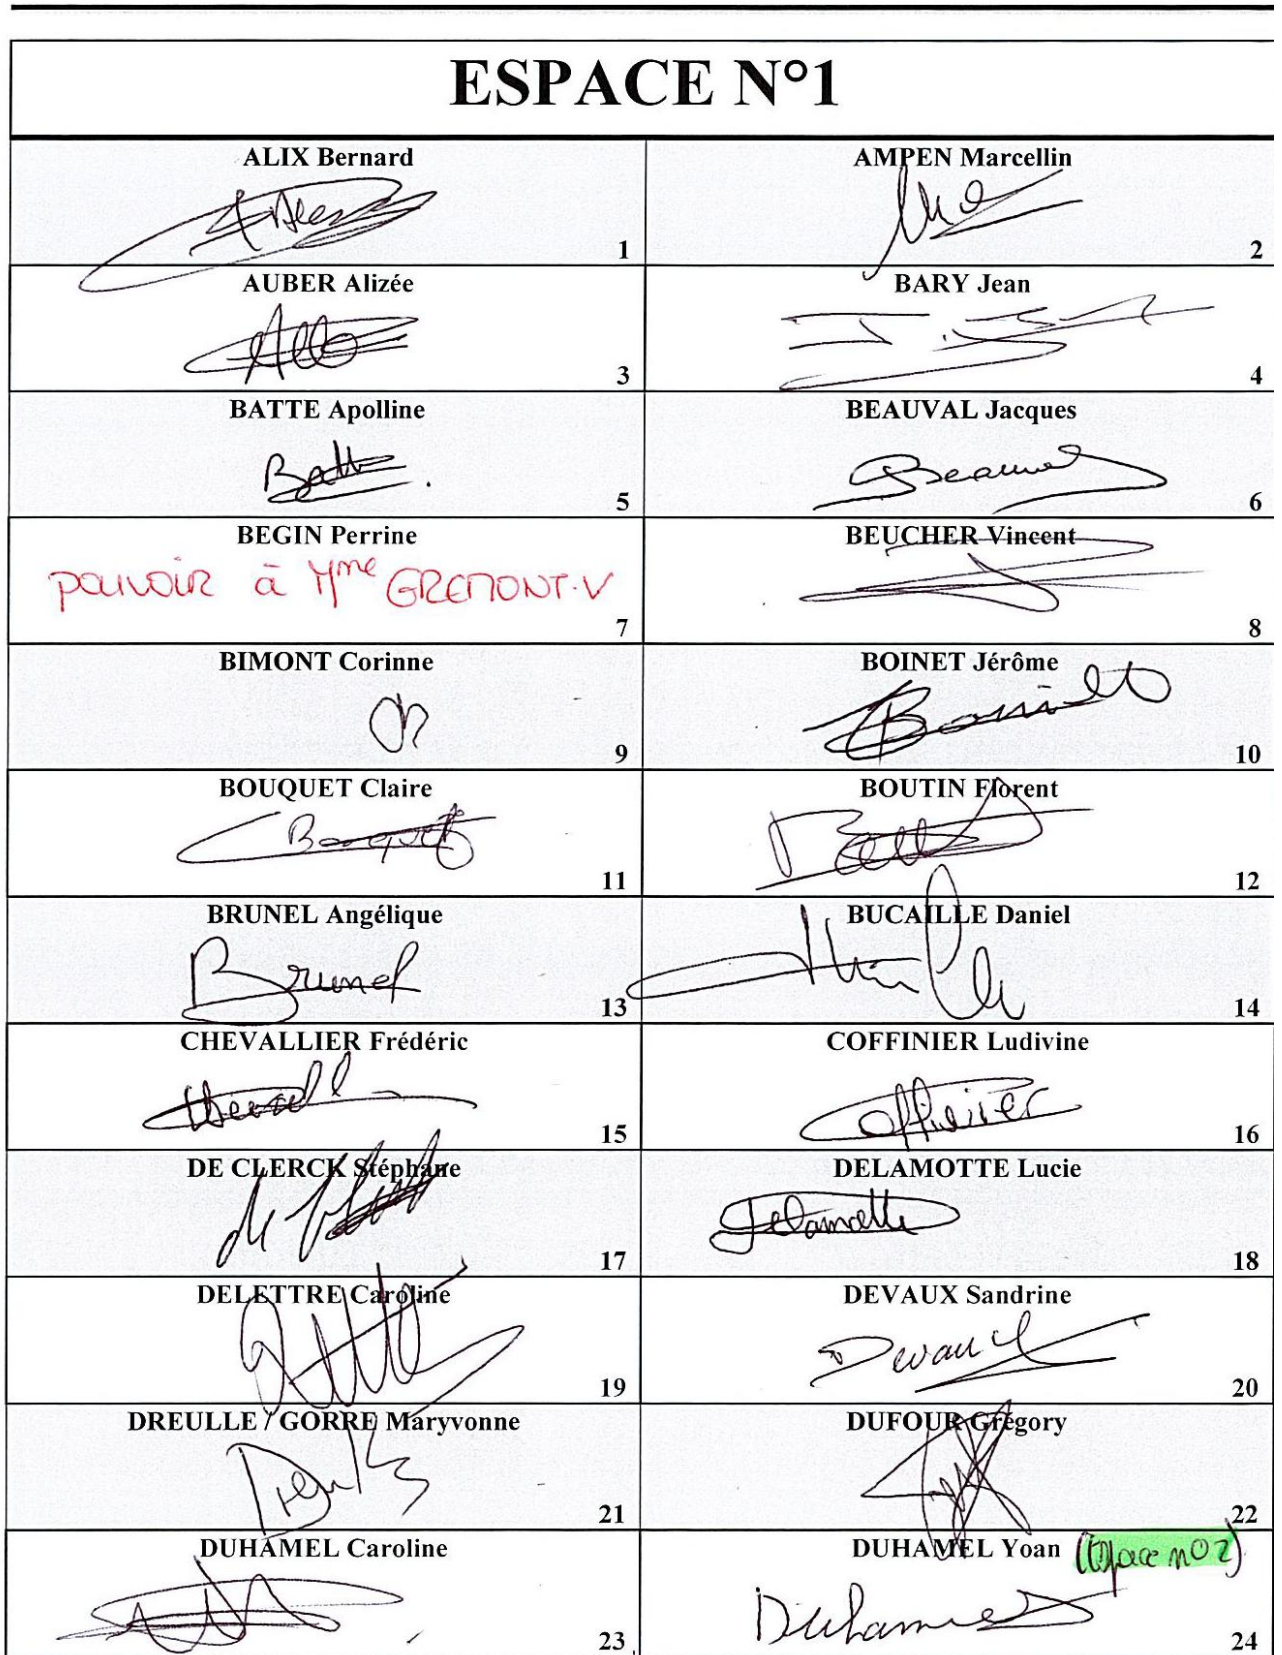 ESPACE N°1
ALIX Bernard
1
AMPEN Marcellin
2
AUBER Alizée
3
BARY Jean
4
BATTE Apolline
5
BEAUVAL Jacques
6
BEGIN Perrine
pouvoir à Mme GREMONT.V
7
BEUCHER Vincent
8
BIMONT Corinne
9
BOINET Jérôme
10
BOUQUET Claire
Bouquet
11
BOUTIN Florent
12
BRUNEL Angélique
Brunel
13
BUCAILLE Daniel
14
CHEVALLIER Frédéric
15
COFFINIER Ludivine
Coffinier
16
DE CLERCK Stéphane
17
DELAMOTTE Lucie
Delamotte
18
DELETTRE Caroline
19
DEVAUX Sandrine
Devaux
20
DREULLE / GORRE Maryvonne
21
DUFOUR Grégory
22
DUHAMEL Caroline
23
DUHAMEL Yoan (Espace n°2)
Duhamel
24